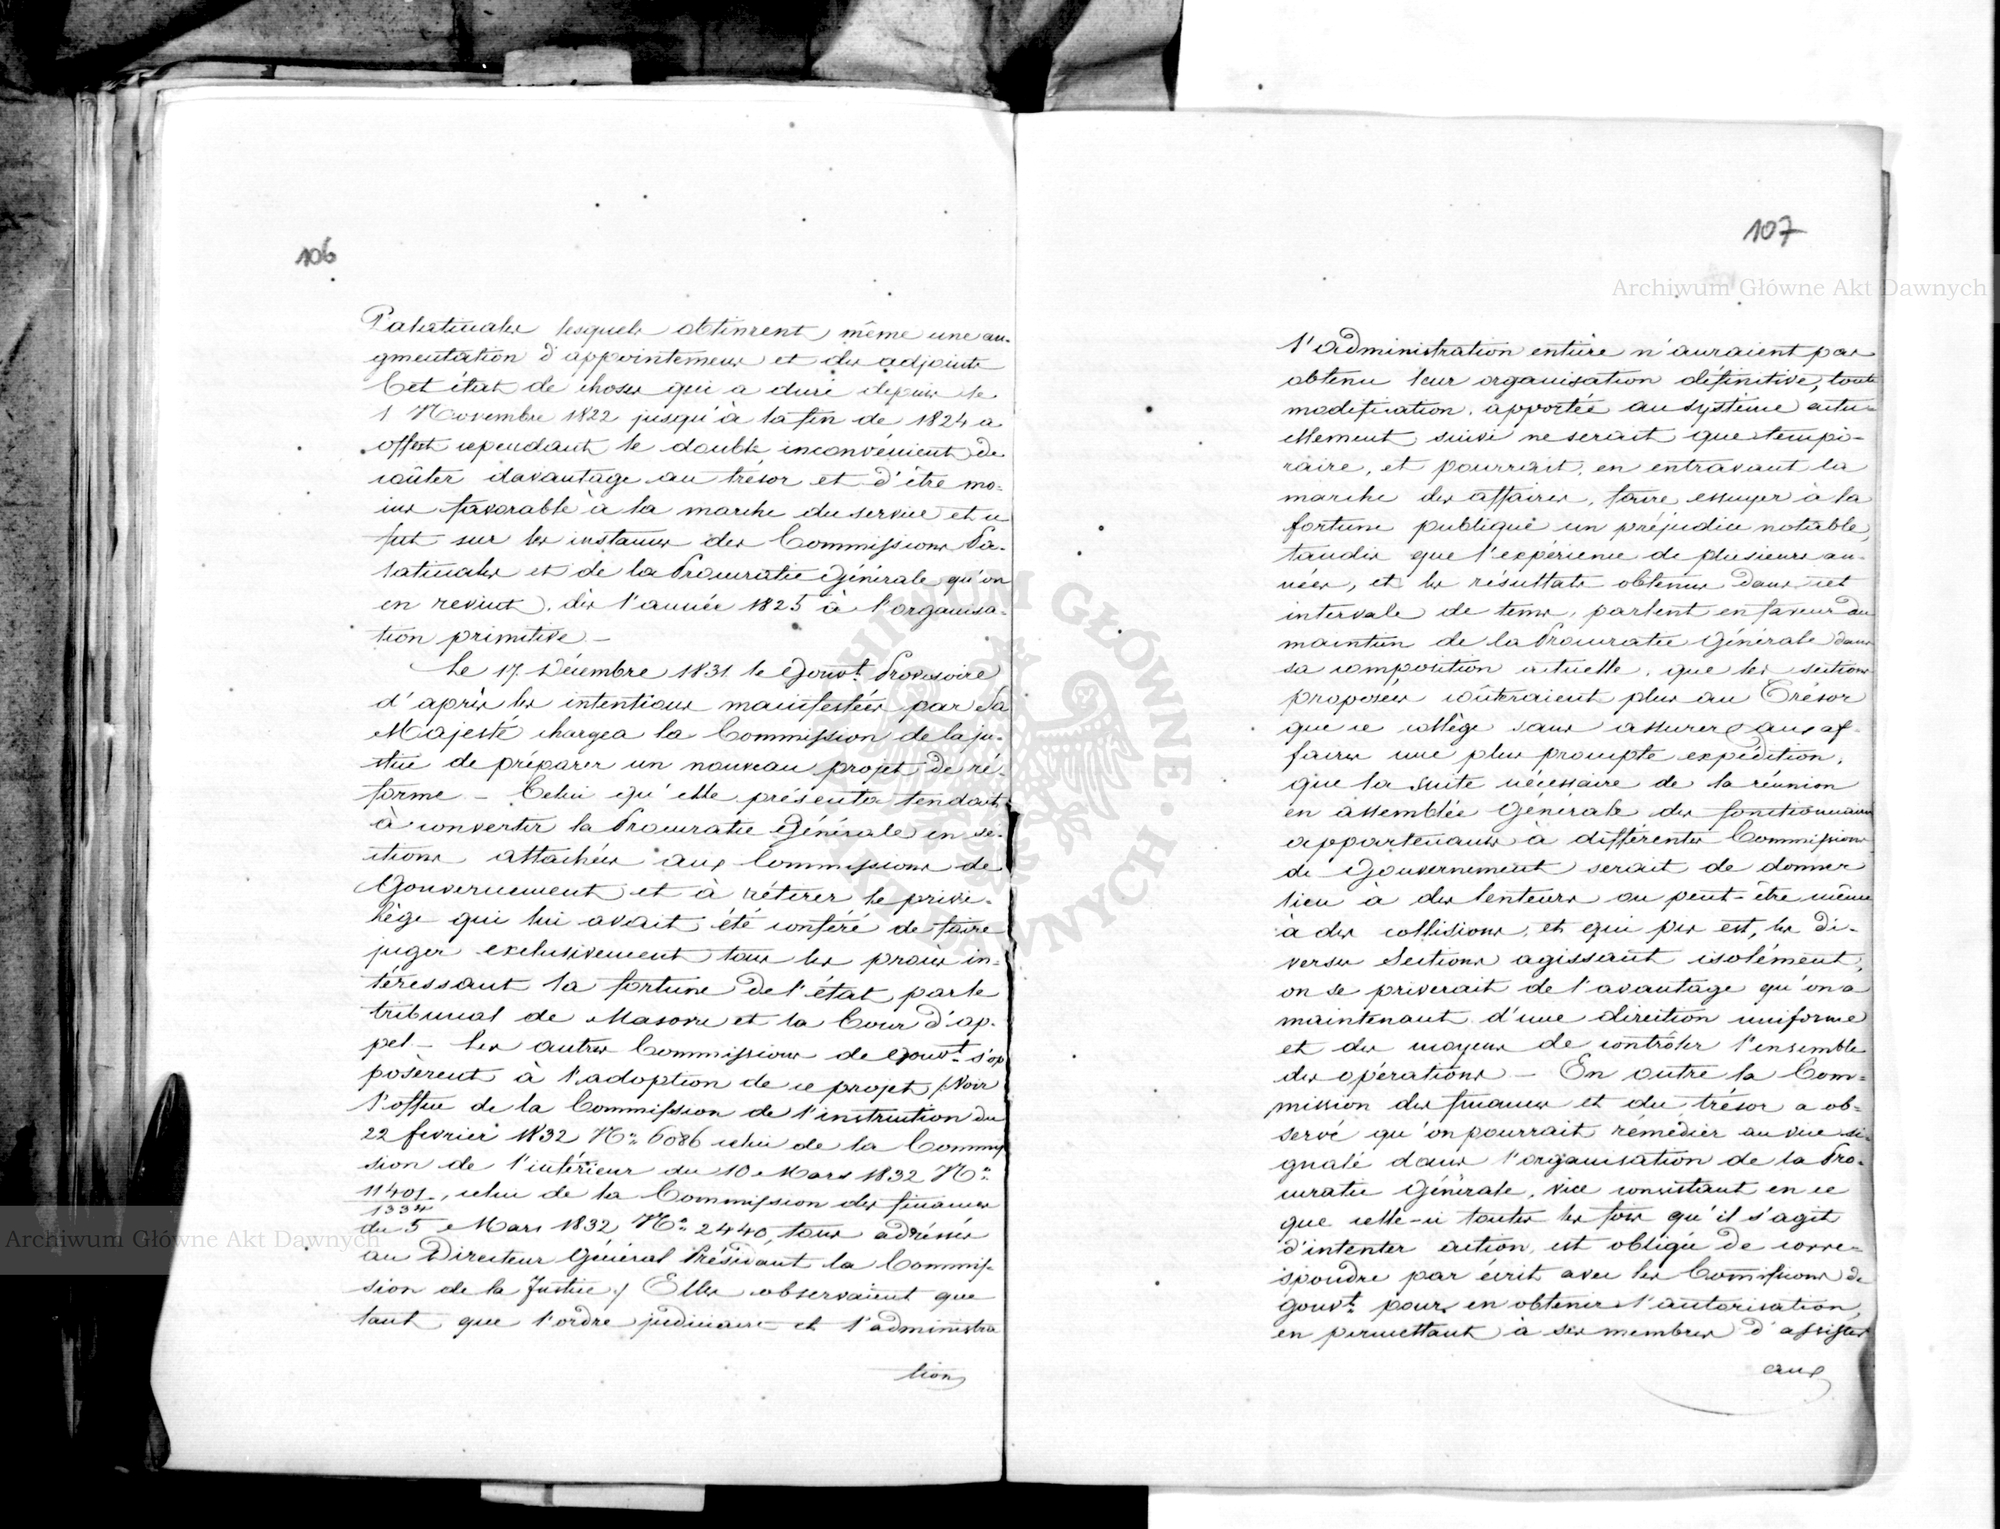 106
Palatinales lesquels obtinrent même une au-
gmentation d'appointemens et des adjoints
Cet état de choses qui a duré depuis le
1 Novembre 1822 jusqu'à la fin de 1824 a
offert cependant le double inconvénient de
coûter davantage au trésor et d'être mo-
ins favorable à la marche du service et ce
fut sur les instances des Commissions Pa-
latinales et de la Procuratie Générale qu'on
en revint, dès l'année 1825 à l'organisa-
tion primitive. –
Le 17. Décembre 1831. le Gouvt. Provisoire
d'après les intentions manifestées par Sa
Majesté chargea la Commission de la ju-
stice de préparer un nouveau projet de ré-
forme – Celui qu'elle présenta tendait
à convertir la Procuratie Générale en se-
ctions attachées aux Commissions de
Gouvernement et à rétirer le privi-
lège qui lui avait été conféré de faire
juger exclusivement tous les procès in-
téressant la fortune de l'état par le
tribunal de Masovie et la Cour d'ap-
pel – Les autres Commissions de Gouvt. s'op
posèrent à l'adoption de ce projet /Voir
l'office de la Commission de l'instruction du
22 fevrier 1832 No. 6086 celui de la Commis
sion de l'intérieur du 10 Mars 1832 No.
11401, celui de la Commission des finances
1334
du 5 Mars 1832 No. 2440, tous adréssés
au Directeur Général Présidant la Commis-
sion de la Justice./ Elles observaient que
tant que l'ordre judiciaire et l'administra
tion
107
l'administration entière n'auraient pas
obtenu leur organisation définitive, toute
modification, apportée au système actu-
ellement suivi ne serait que tempo-
raire, et pourrait, en entravant la
marche des affaires, faire essuyer à la
fortune publique un préjudice notable,
tandis que l'expérience de plusieurs an-
nées, et les résultats obtenus dans cet
intervale de tems, parlent en faveur du
maintien de la Procuratie Générale dans
sa composition actuelle, que les sections
proposées coûteraient plus au Trésor
que ce collège sans assurer aux af-
faires une plus prompte expédition,
que la suite nécessaire de la réunion
en assemblée Générale des fonctionnaires
appartenants à différentes Commissions
de Gouvernement serait de donner
lieu à des lenteurs ou peut-être même
à des collisions, et qui pis est, les di-
verses Sections agissant isolément,
on se priverait de l'avantage qu'on a
maintenant d'une direction uniforme
et des moyens de contrôler l'ensemble
des opérations – En outre la Com-
mission des finances et du trésor a ob-
servé qu'on pourrait rémédier au vice si-
gnalé dans l'organisation de la Pro-
curatie Générale, vice consistant en ce
que celle-ci toutes les fois qu'il s'agit
d'intenter action, est obligée de corre-
spondre par écrit avec les Commissions de
gouvt. pour en obtenir l'autorisation,
en permettant à ses membres d'assister
aux
Archiwum Główne Akt Dawnych
Archiwum Główne Akt Dawnych
ARCHIWUM GŁÓWNE · AKT DAWNYCH ·